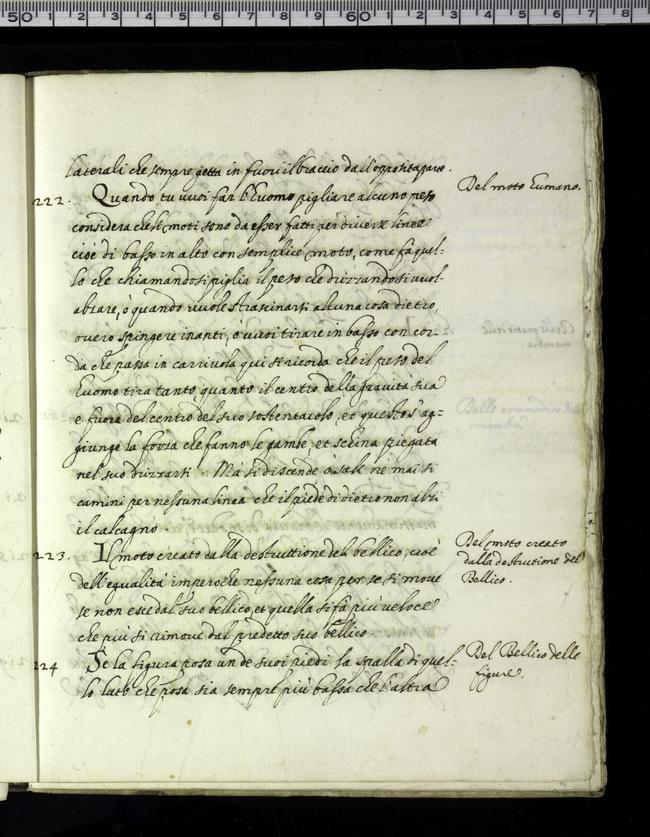 laterali che sempre getta in fuori il braccio dall'opposita parte.
222. Quando tu vuoi far l'huomo pigliare alcuno peso
Del moto humano.
considera che li moti sono da esser fatti per diverse linee
cioè di basso in alto con semplice moto, come fà quel-
lo che chinandosi piglia il peso che drizzandosi vuol
alzare, ò quando vuole strascinarsi alcuna cosa dietro,
overo spingere inanti, ò vuoi tirare in basso con cor-
da che passa in carrivola qui si ricorda che il peso del
huomo tira tanto, quanto il centro della gravità sua
è fuora del centro del suo sostentacolo, et questo s'ag-
giunge la forza che fanno le gambe, et schina piegata
nel suo drizzarsi. Mà si discende ò sale nè mai si
camini per nessuna linea che il piede di dietro non alzi
il calcagno.
223. Il moto creato dalla destruttione del bellico, cioè
Del moto creato
dalla destrutione del
Bellico.
dell'equalità imperochè nessuna cosa per se si move
se non esce dal suo bellico, et quella si fà più veloce
che più si rimove dal predetto suo bellico.
224 Se la figura posa un de suoi piedi la spalla di quel-
lo lato che posa sia sempre più bassa che l'altra
Del Bellico delle
figure.